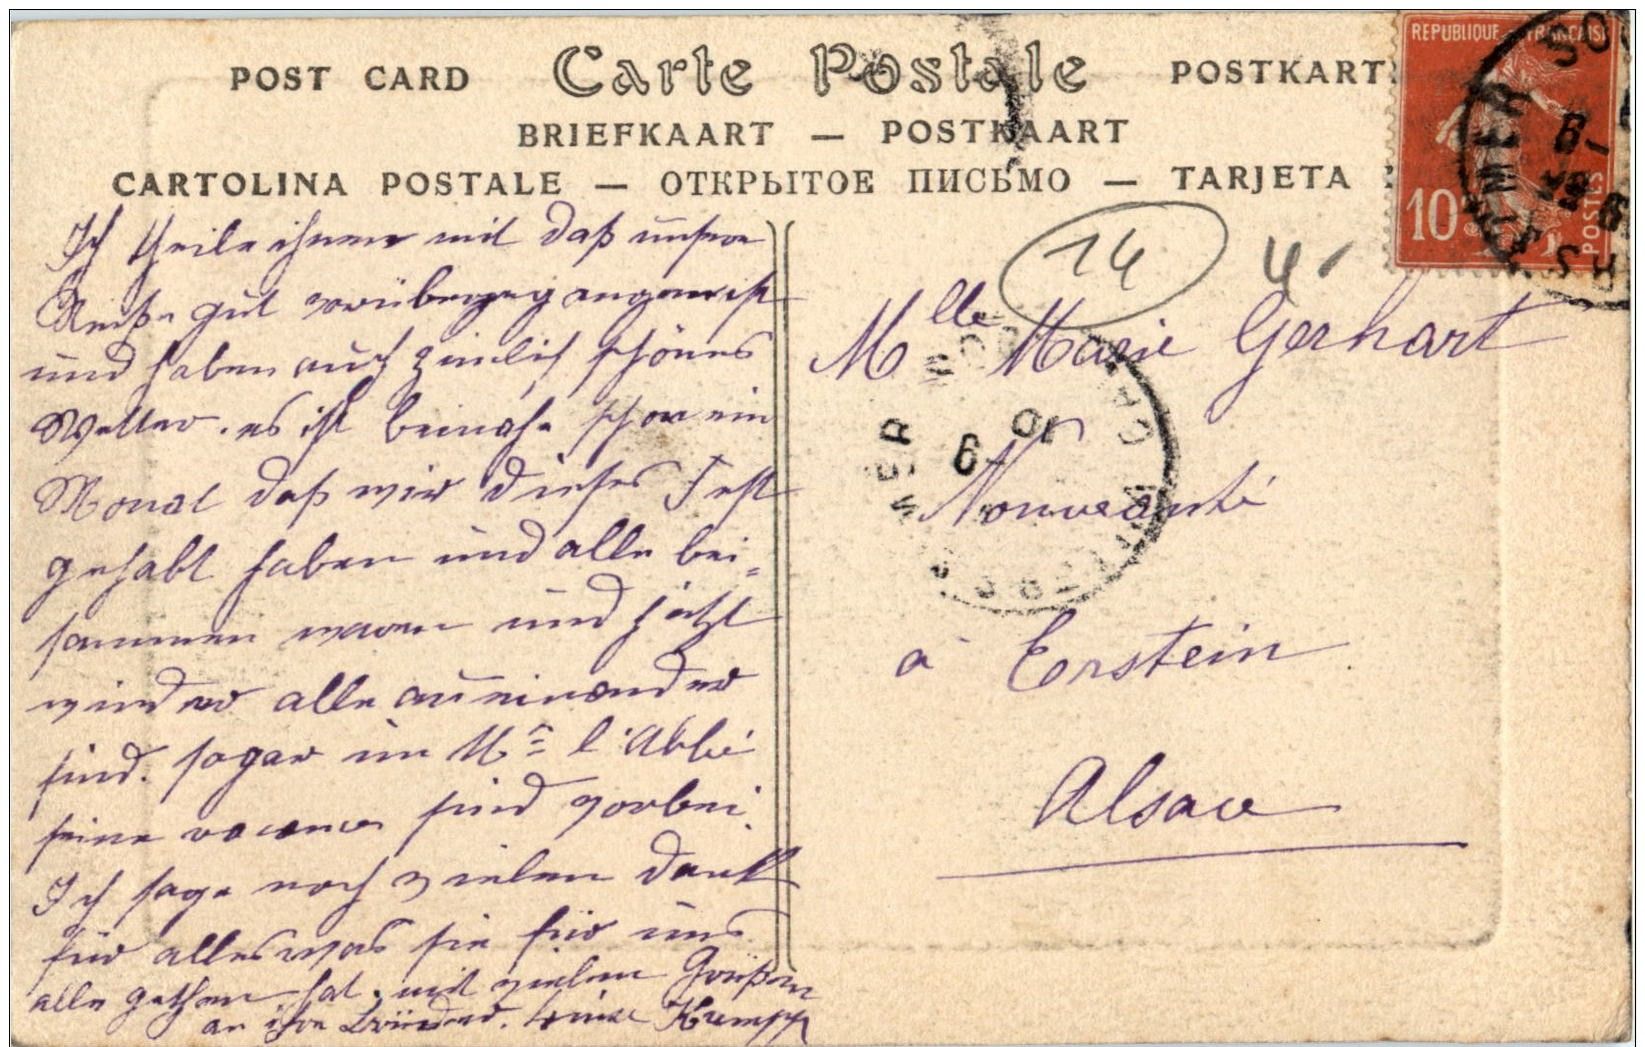 POST CARD Carte Postale POSTKART
BRIEFKAART — POSTKAART
CARTOLINA POSTALE — ОТКРЫТОЕ ПИСЬМО — TARJETA
REPUBLIQUE FRANÇAISE
10
POSTES
14
4
Ich theile ihnen mit daß unsere
Reiße gut vorübergegangen ist
und haben auch zimlich schönes
Wetter. es ist beinahe schon ein
Monat daß wir dieses Fest
gehabt haben und alle bei=
sammen waren und jetzt
wieder alle aueinander
sind. sogar im Mr l'Abbé
seine vacances sind vorbei.
Ich sage noch vielen Dank
für alles was sie für uns
alle gethan hat. mit vielen Grüßen
an ihre Brüder. Krempp
Mlle Marie Gerhart
Nouveauté
à Erstein
Alsace